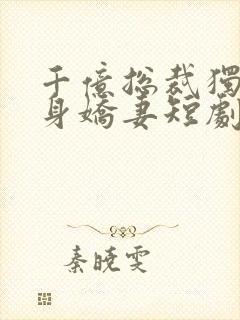 千億总裁獨
身嬌妻短劇
秦曉雯